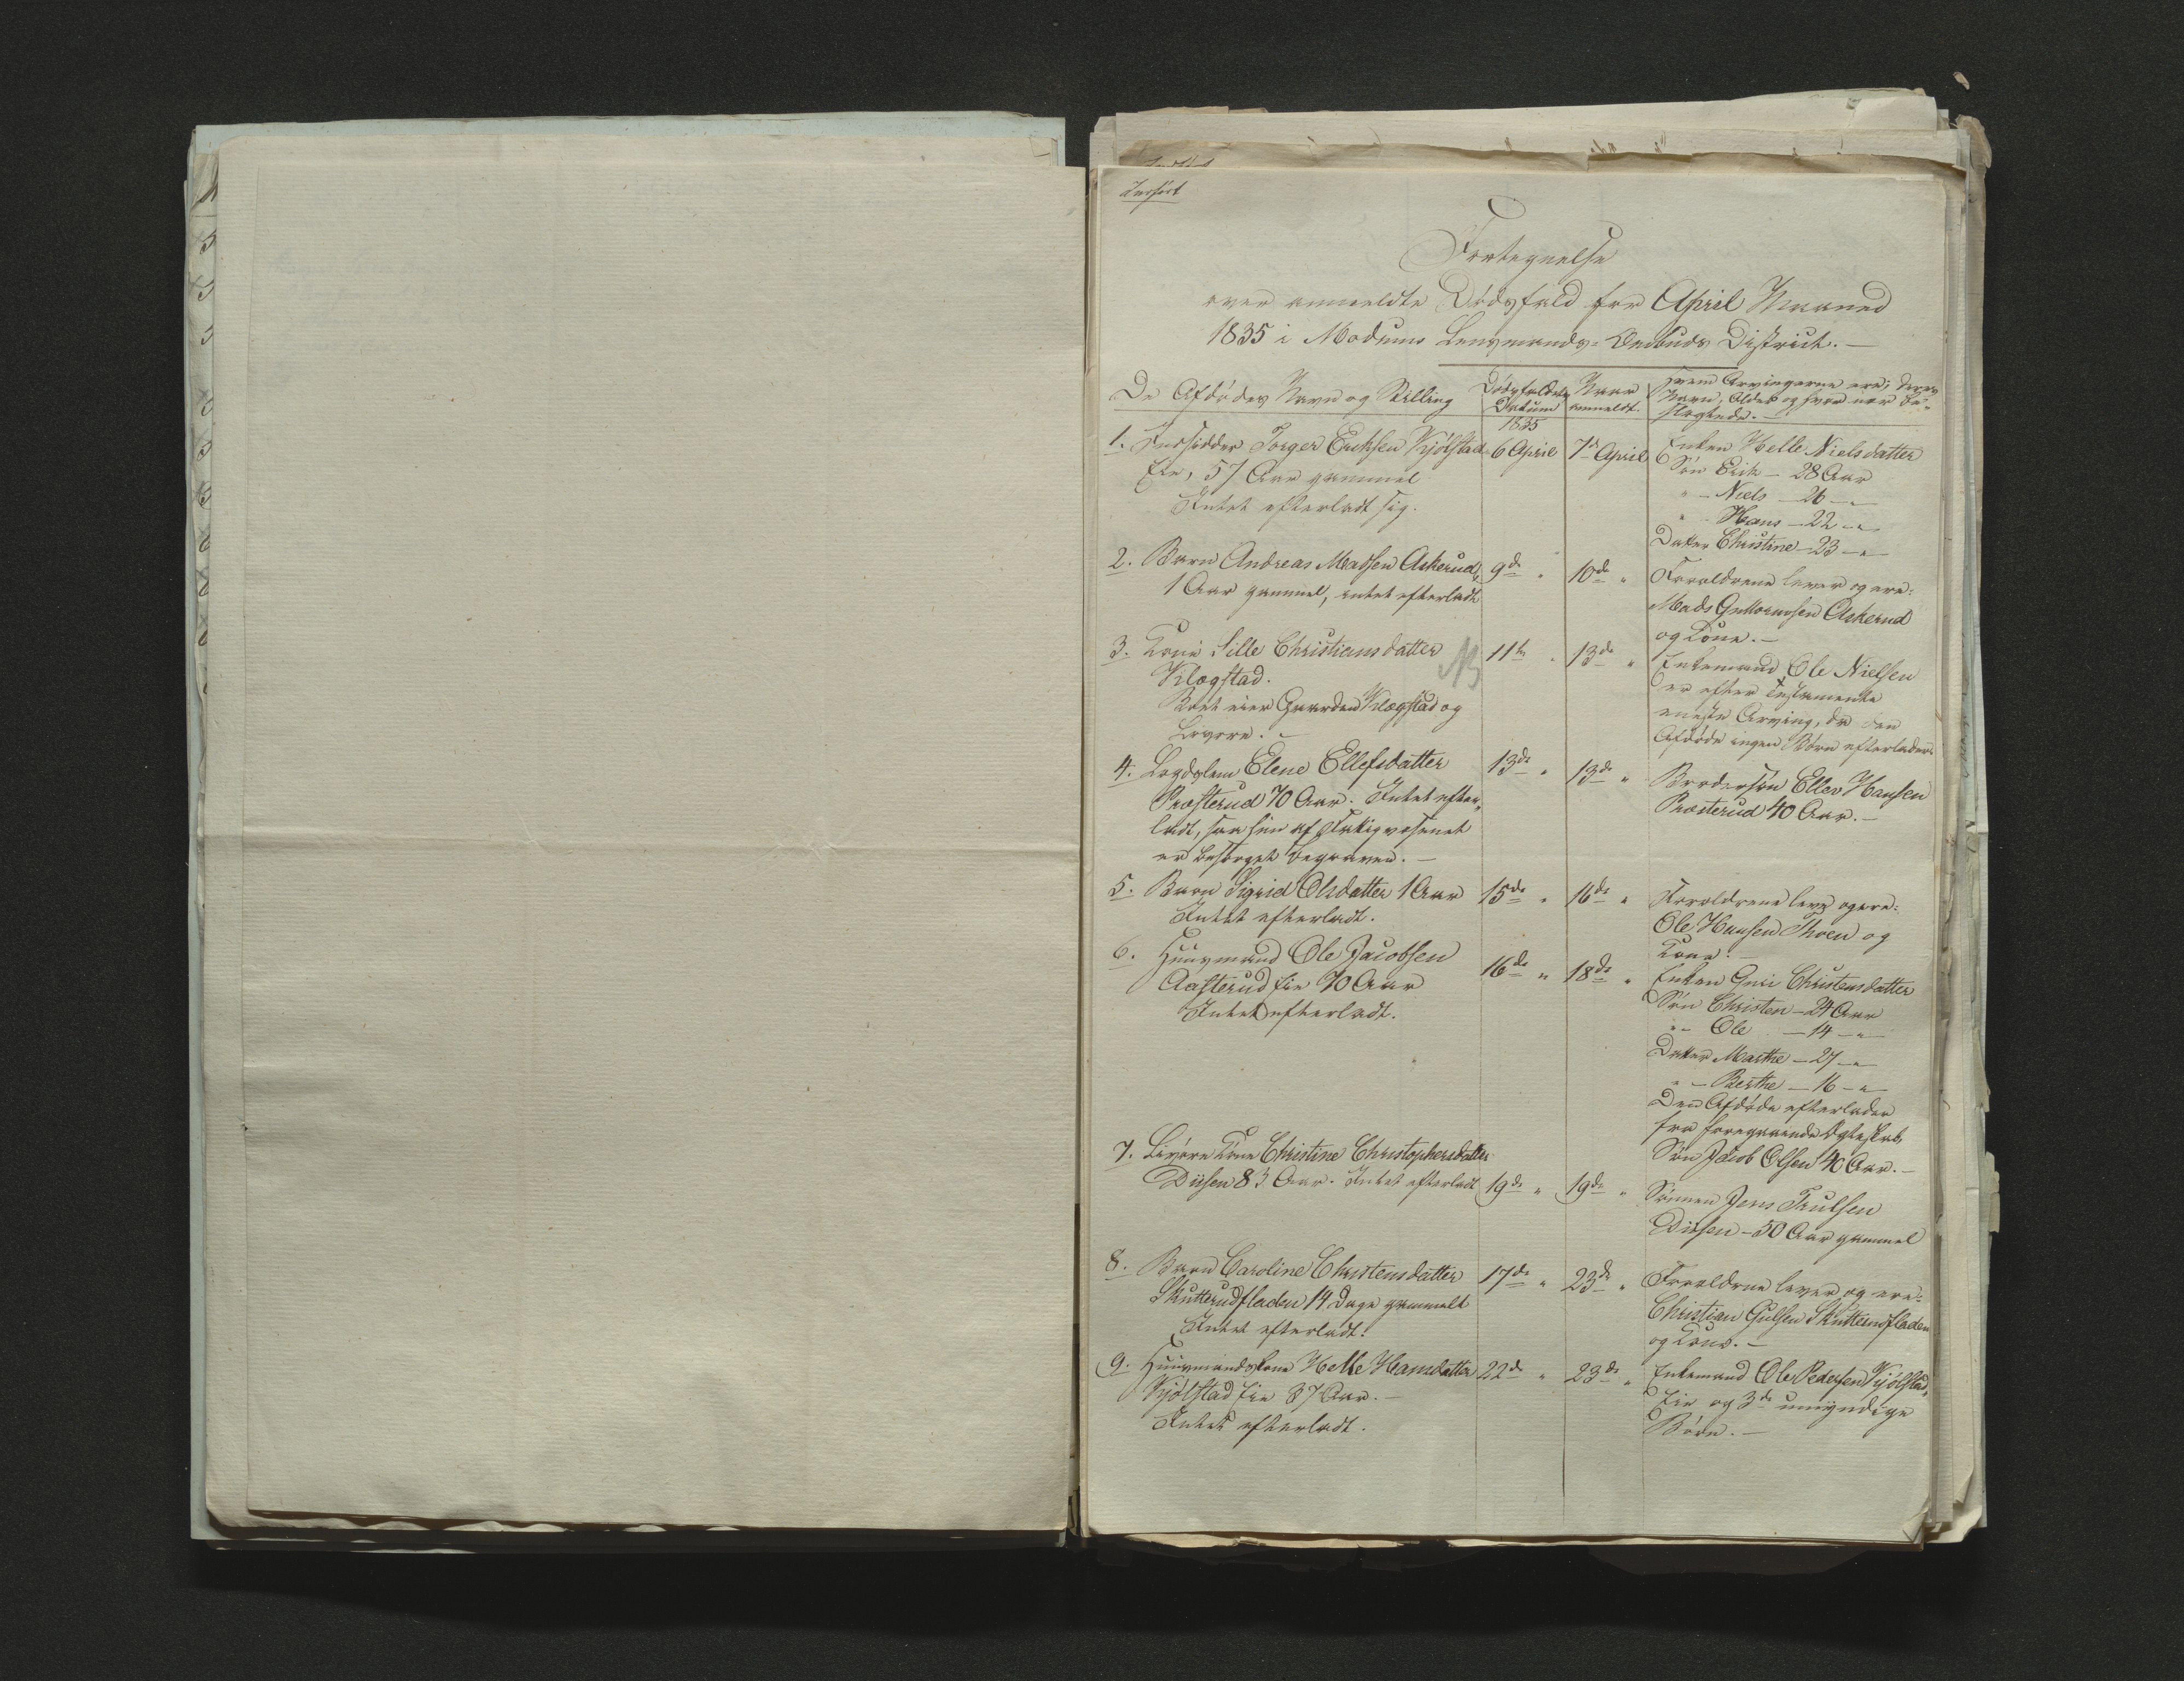 Indført
Fortegnelse
over anmeldte Dødsfald for April Maaned
1835 i Modums Lensmands-Ombuds District. —
De Afdødes Navn og Stilling
Dødsfaldets Datum
Naar anmeldt.
Hvem Arvingerne ere; deres
Navn, Alder og hvor nær be-
slægtede. —
1835
1. Indsidder Torger Erichsen Kjølstad
Eie, 57 Aar gammel
Intet efterladt sig.
6 April
7de April
Enken Helle Nielsdatter
Søn Erik — 28 Aar
" — Niels — 26 — "
" - Hans — 22 — "
Datter Christine — 23 — "
2. Barn Andreas Madsen Askerud,
1 Aar gammel, intet efterladt
9de "
10de "
Forældrene lever og ere:
Mads Guttormsen Askerud
og Kone. —
3. Kone Sille Christiansdatter
Kløgstad.
Boet eier Gaarden Kløgstad og
Løsøre. —
NB
11te "
13de "
Enkemand Ole Nielsen
er efter Testamente
eneste Arving, da den
Afdøde ingen Børn efterlader.
4. Lægdslem Elene Ellefsdatter
Præsterud 70 Aar. Intet efter-
ladt, saa hun af Fattigvæsenet
er besørget begraven. —
13de "
13de "
Brodersøn Ellev Hansen
Præsterud 40 Aar. —
5. Barn Sigrid Olsdatter 1 Aar
Intet efterladt.
15de "
16de "
Forældrene leve og ere:
Ole Hansen Thoen og
Kone. —
6. Huusmand Ole Jacobsen
Aasterud Eie 70 Aar
Intet efterladt.
16de "
18de "
Enken Guri Christensdatter
Søn Christen — 24 Aar
" - Ole — 14 — "
Datter Marthe — 27 — "
" — Berthe — 16 — "
Den Afdøde efterlader
fra foregaaende Ægteskab,
Søn Jacob Olsen 40 Aar. —
7. Livøre Kone Christine Christophersdatter
Diisen 83 Aar. Intet efterladt
19de "
19de "
Sønnen Jens Trulsen
Diisen — 50 Aar gammel
8. Barn Caroline Christensdatter
Skutterudfladen 14 Dage gammelt
Intet efterladt.
17de "
23de "
Forældrne lever og ere:
Christian Gulsen Skutterudfladen
og Kone. —
9. Huusmandskone Helle Hansdatter
Kjølstad Eie 37 Aar. —
Intet efterladt.
22de "
23de "
Enkemand Ole Pedersen Kjølstad-
Eie og 3de umyndige
Børn. —